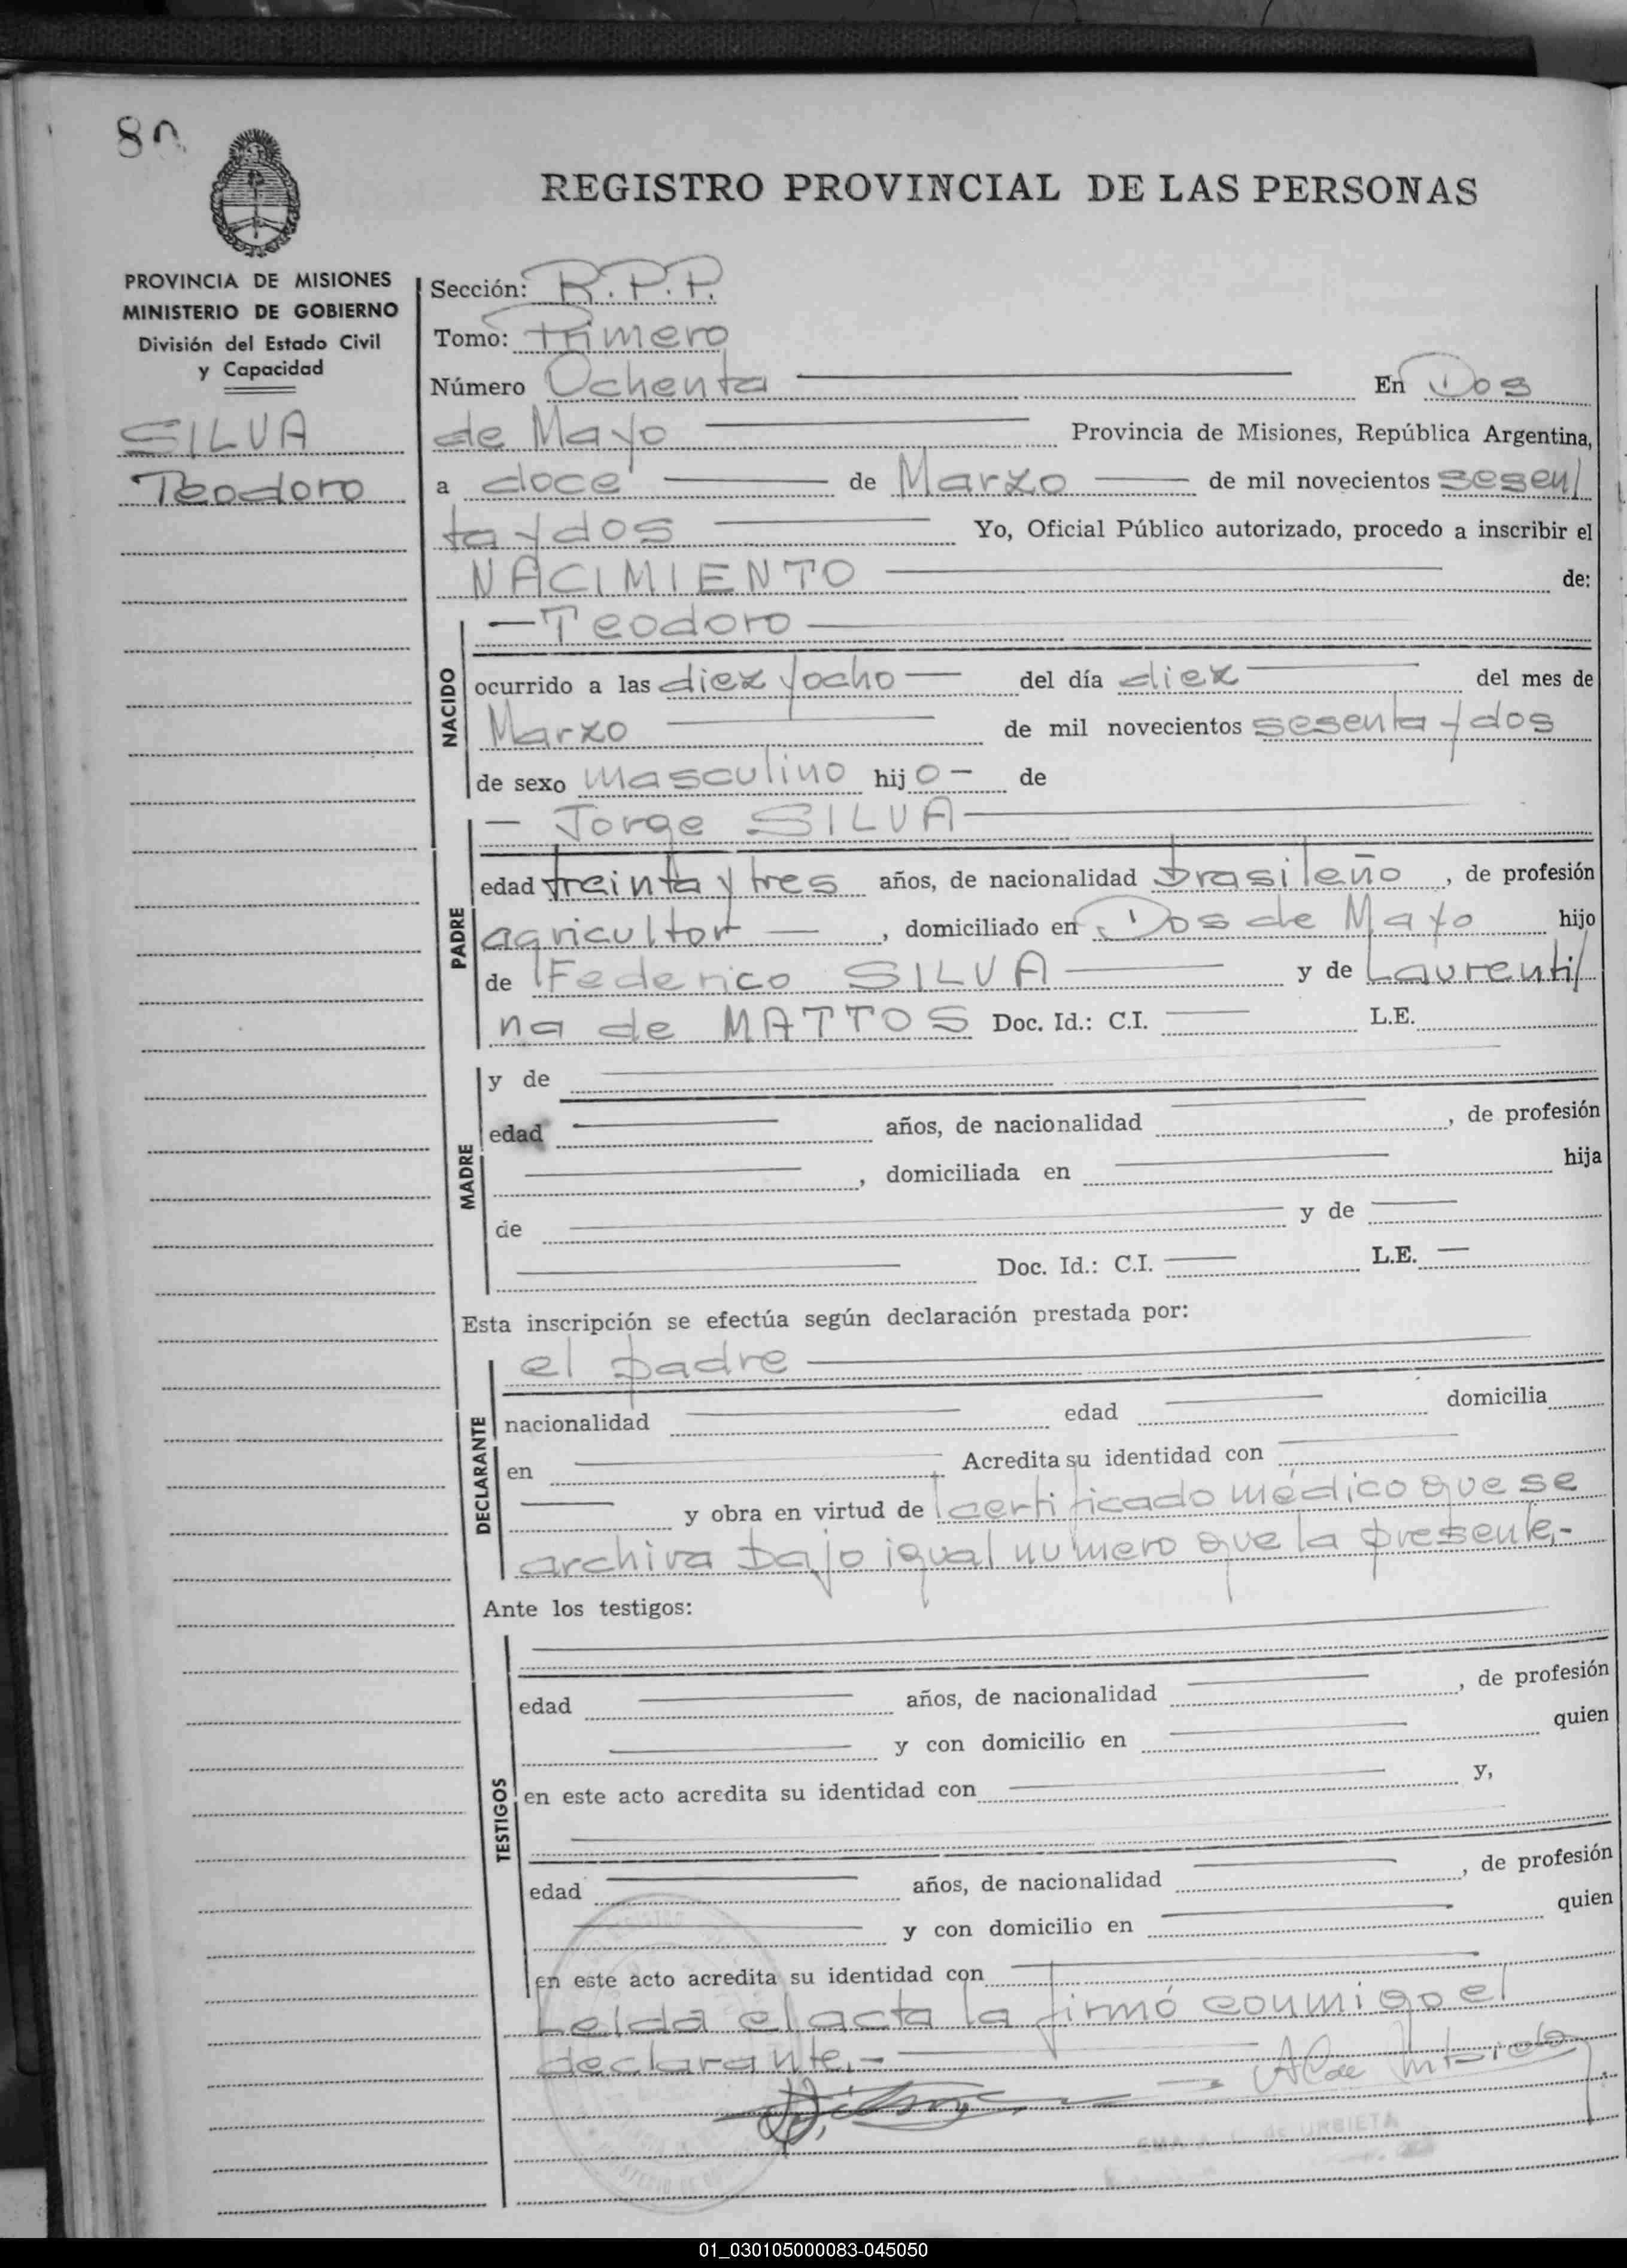 80
REGISTRO PROVINCIAL DE LAS PERSONAS
PROVINCIA DE MISIONES
MINISTERIO DE GOBIERNO
División del Estado Civil
y Capacidad
SILVA
Teodoro
Sección: R.P.P.
Tomo: Primero
Número Ochenta En Dos
de Mayo Provincia de Misiones, República Argentina,
a doce de Marzo de mil novecientos sesen
ta y dos Yo, Oficial Público autorizado, procedo a inscribir el
NACIMIENTO de:
NACIDO
Teodoro
ocurrido a las diez y ocho del día diez del mes de
Marzo de mil novecientos sesenta y dos
de sexo masculino hijo de
PADRE
Jorge SILVA
edad treinta y tres años, de nacionalidad brasileño, de profesión
agricultor, domiciliado en Dos de Mayo hijo
de Federico SILVA y de Laurenti
na de MATTOS Doc. Id.: C.I. L.E.
MADRE
y de
edad años, de nacionalidad , de profesión
, domiciliada en hija
de y de
Doc. Id.: C.I. L.E.
Esta inscripción se efectúa según declaración prestada por:
DECLARANTE
el padre
nacionalidad edad domicilia
en Acredita su identidad con
y obra en virtud de certificado médico que se
archiva bajo igual numero que la presente.-
Ante los testigos:
TESTIGOS
edad años, de nacionalidad , de profesión
y con domicilio en quien
en este acto acredita su identidad con y,
edad años, de nacionalidad , de profesión
y con domicilio en quien
en este acto acredita su identidad con
Leída el acta la firmó conmigo el
declarante.-
de URBIETA
01_030105000083-045050